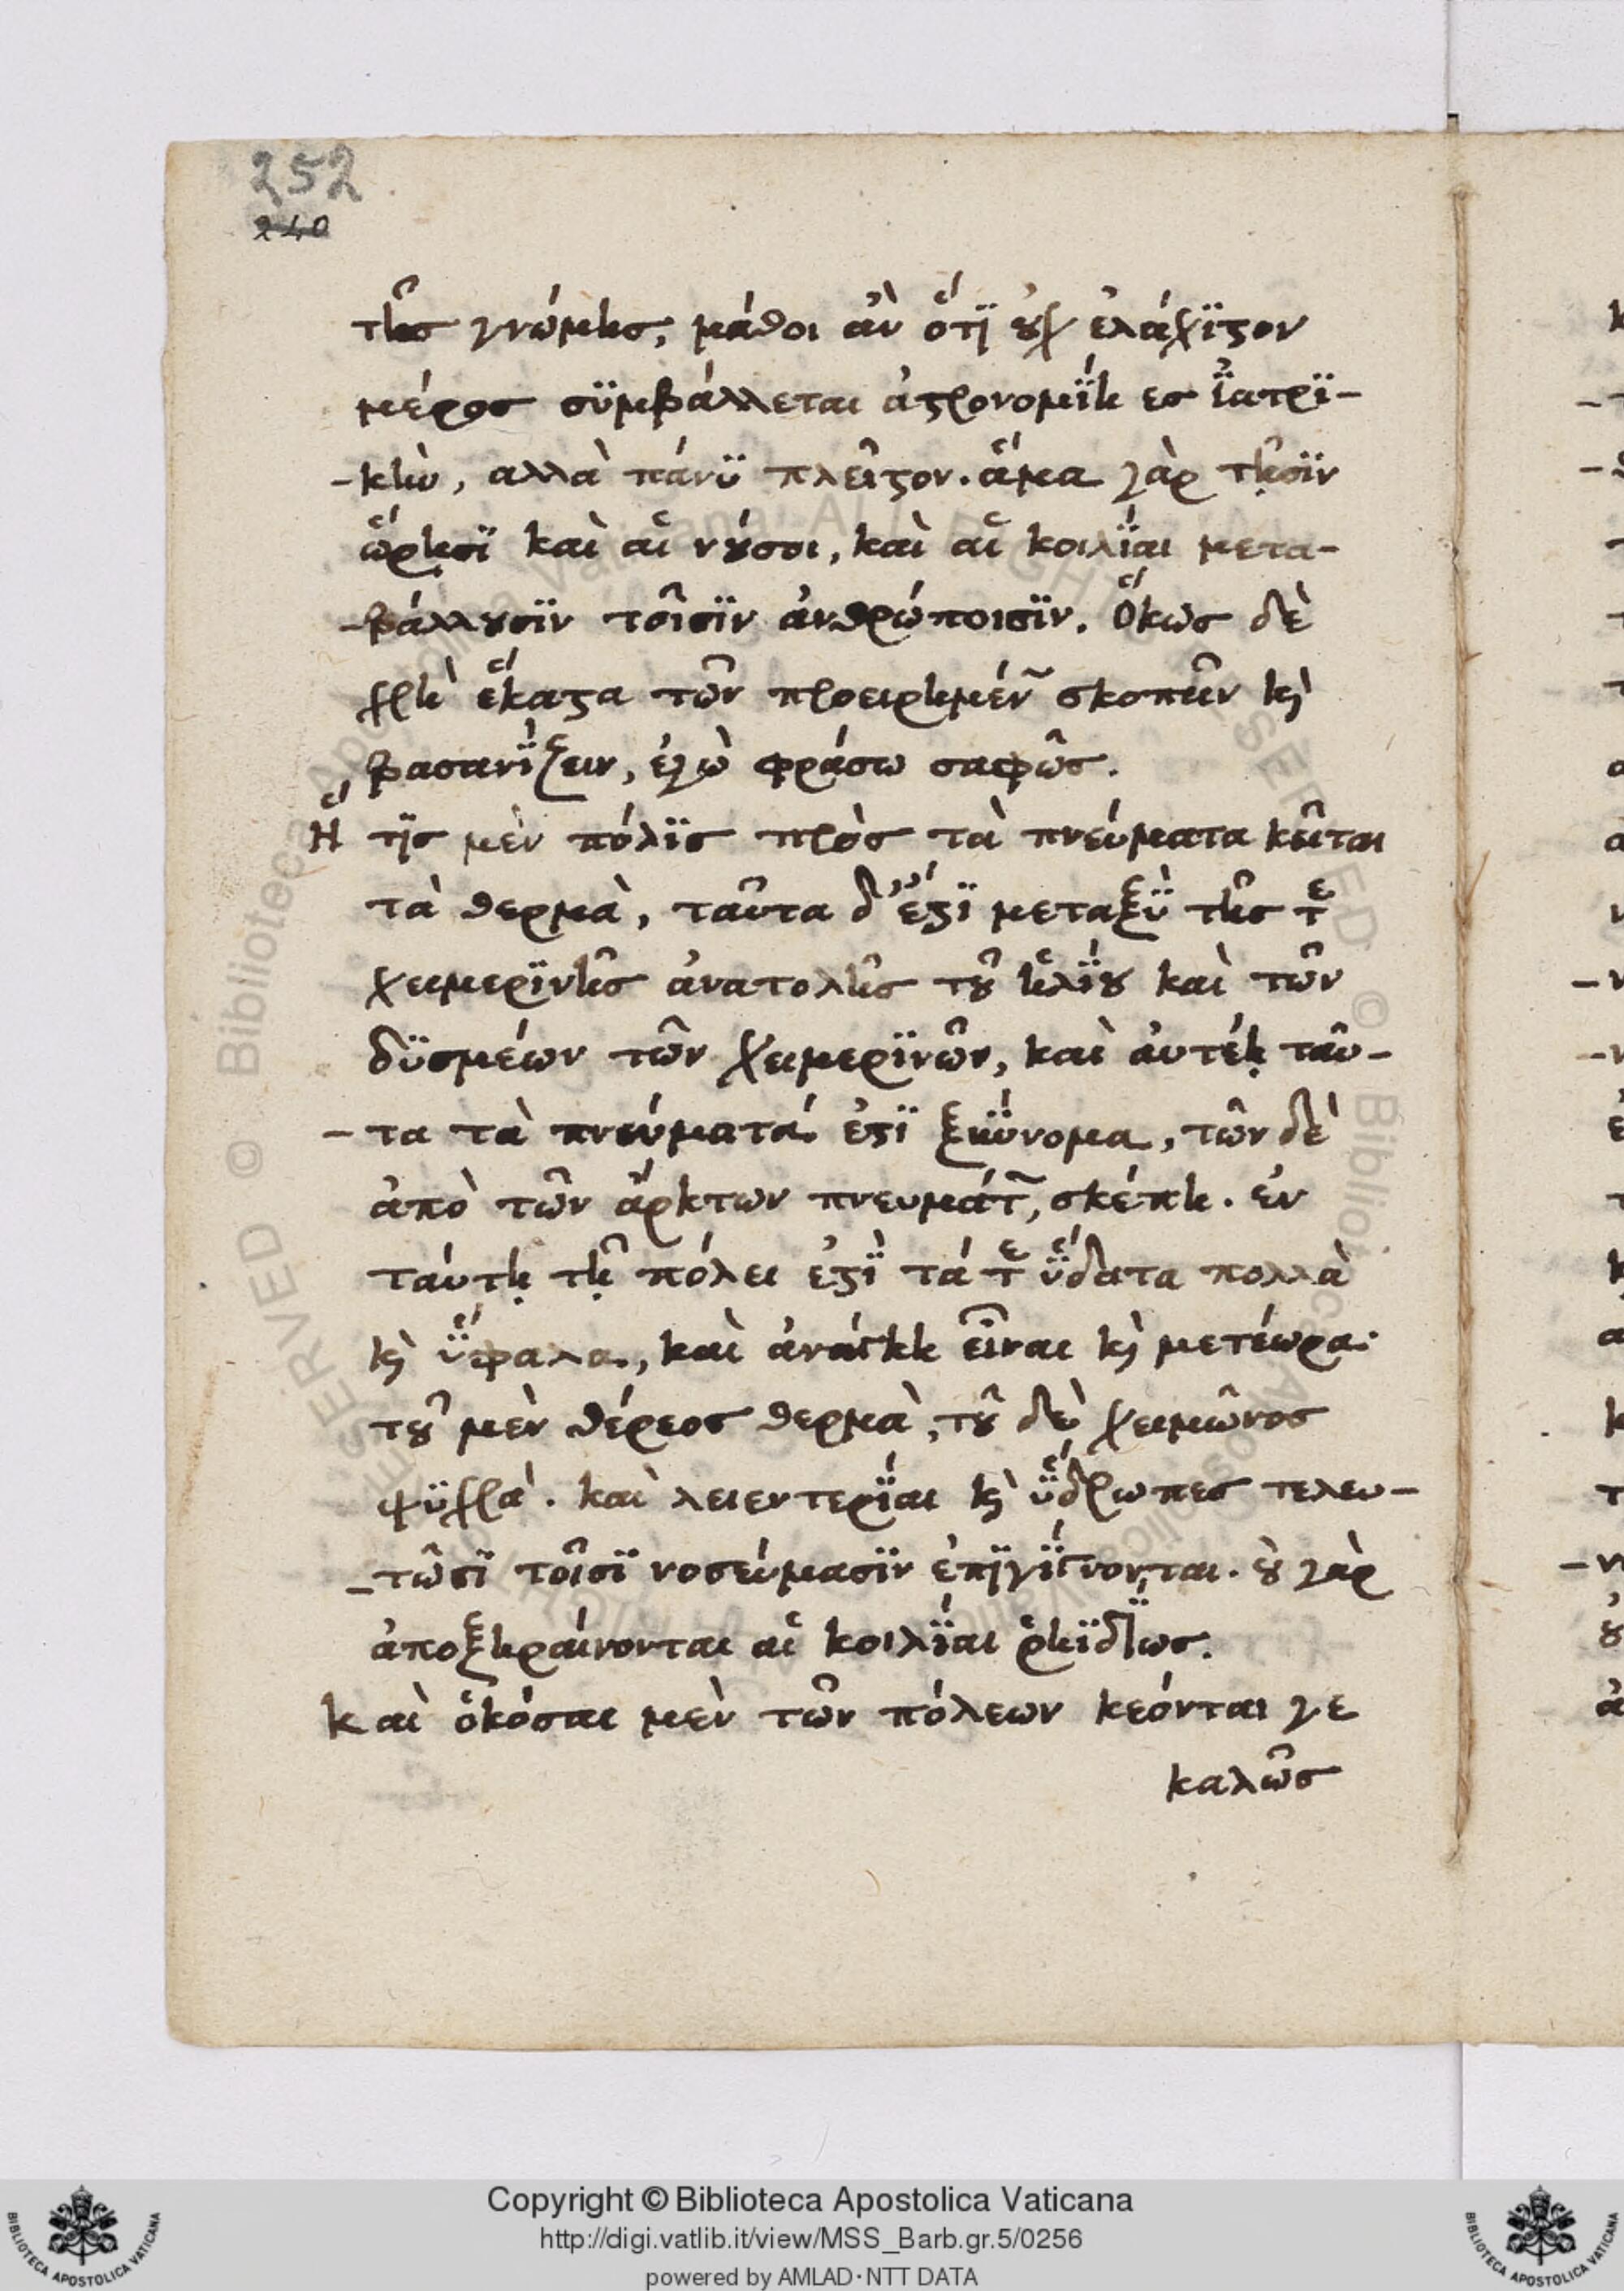 252
240
τῆς γνώμης, μάθοι ἀν ὅτϊ οὐχ ἐλάχϊστον
μέρος σϋμβάλλεται ἀστρονομΐη ες ἰατρϊ-
-κὴν, αλλὰ πάνϋ πλεῖστον. ἅμα γὰρ τῇσϊν
ὥρησϊ καὶ αἱ νούσοι, καὶ αἱ κοιλΐαι μετα-
-βάλλουσϊν τοῖσϊν ἀνθρώποισϊν. Ὅκως δὲ
χρὴ ἕκαστα τῶν προειρημένων σκοπεῖν καὶ
βασανΐζειν, ἐγὼ φράσω σαφῶς.
Ἥ τϊς μὲν πόλϊς πρὸς τὰ πνεύματα κεῖται
τὰ θερμὰ, ταῦτα δ' ἔστϊ μεταξῢ τῆς τε
χειμερϊνῆς ἀνατολῆς τοῦ ἡλΐου καὶ τῶν
δϋσμέων τῶν χειμερϊνῶν, καὶ ἀυτέῃ ταῦ-
-τα τὰ πνεύματά ἐστϊ ξυΰνομα, τῶν δὲ
ἀπὸ τῶν ἄρκτων πνευμάτων, σκέπη. ἐν
ταύτῃ τῇ πόλει ἐστῒ τά τε ὕδατα πολλὰ
καὶ ὕφαλα, καὶ ἀνάγκη εἶναι καὶ μετέωρα·
τοῦ μὲν θέρεος θερμὰ, τοῦ δὲ χειμῶνος
ψϋχρά. καὶ λειεντερΐαι καὶ ὕδρωπες τελευ-
-τῶσϊ τοῖσϊ νοσεύμασϊν ἐπϊγΐγνονται. οὐ γὰρ
ἀποξηραίνονται αἱ κοιλΐαι ῥηϊδΐως.
Καὶ ὁκόσαι μὲν τῶν πόλεων κεόνται γε
καλῶς
Copyright © Biblioteca Apostolica Vaticana
http://digi.vatlib.it/view/MSS_Barb.gr.5/0256
powered by AMLAD·NTT DATA